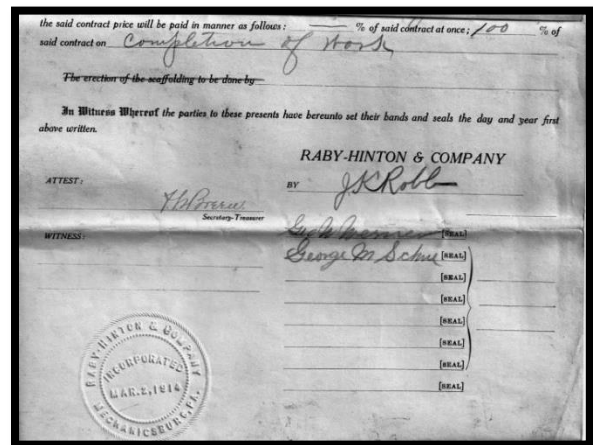 the said contract price will be paid in manner as follows: % of said contract at once; 100 % of
said contract on completion of work
The erection of the scaffolding to be done by
In Witness Whereof the parties to these presents have hereunto set their hands and seals the day and year first
above written.
RABY-HINTON & COMPANY
ATTEST:
BY J K Robb
Secretary-Treasurer
WITNESS:
[SEAL]
George M [SEAL]
[SEAL]
[SEAL]
[SEAL]
[SEAL]
[SEAL]
[SEAL]
RABY-HINTON & COMPANY
INCORPORATED
MAR. 2, 1914
MECHANICSBURG, PA.